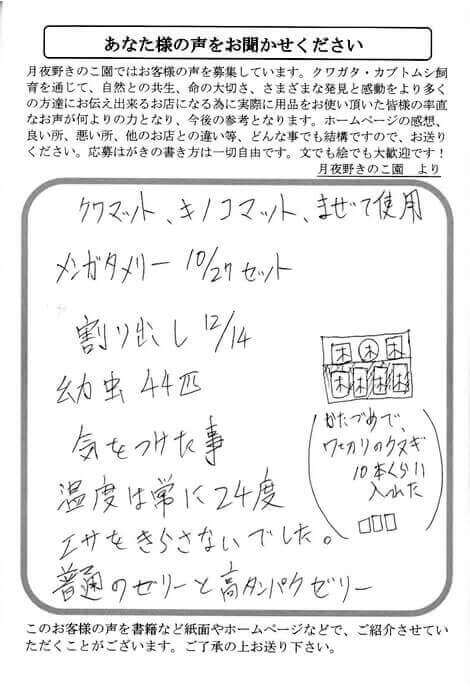 あなた様の声をお聞かせください
月夜野きのこ園ではお客様の声を募集しています。クワガタ・カブトムシ飼
育を通じて、自然との共生、命の大切さ、さまざまな発見と感動をより多く
の方達にお伝え出来るお店になる為に実際に用品をお使い頂いた皆様の率直
なお声が何よりの力となり、今後の参考となります。ホームページの感想、
良い所、悪い所、他のお店との違い等、どんな事でも結構ですので、お送り
ください。応募はがきの書き方は一切自由です。文でも絵でも大歓迎です！
月夜野きのこ園　より
クワマット、キノコマット、まぜて使用
メンガタメリー 10/27セット
割り出し 12/14
幼虫 44匹
気をつけた事
温度は常に24度
エサをきらさないでした。
普通のゼリーと高タンパクゼリー
木 木 木
木 木 木 木
かたづめで、
ワリカリのクヌギ
10本くらい
入れた
このお客様の声を書籍など紙面やホームページなどで、ご紹介させてい
ただくことがございます。ご了承の上お送り下さい。